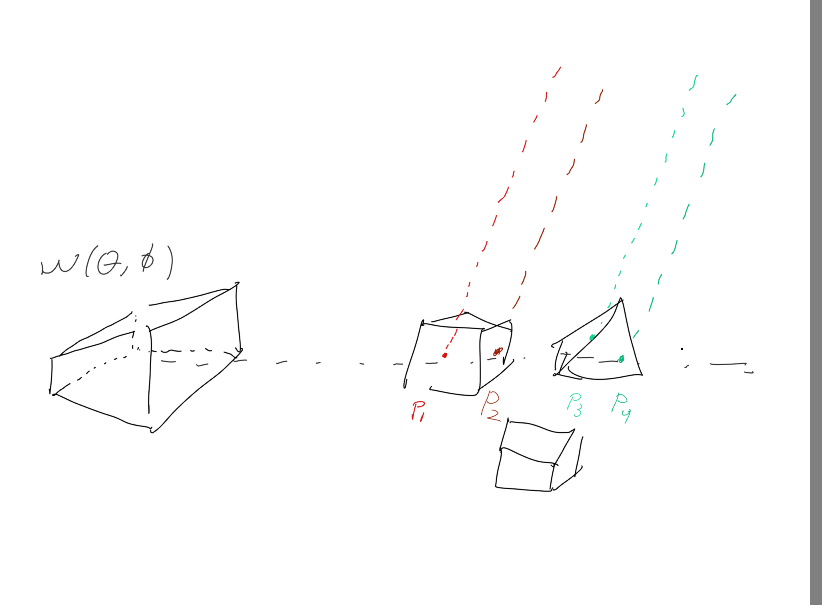 W(θ, φ)
P1
P2
P3
P4